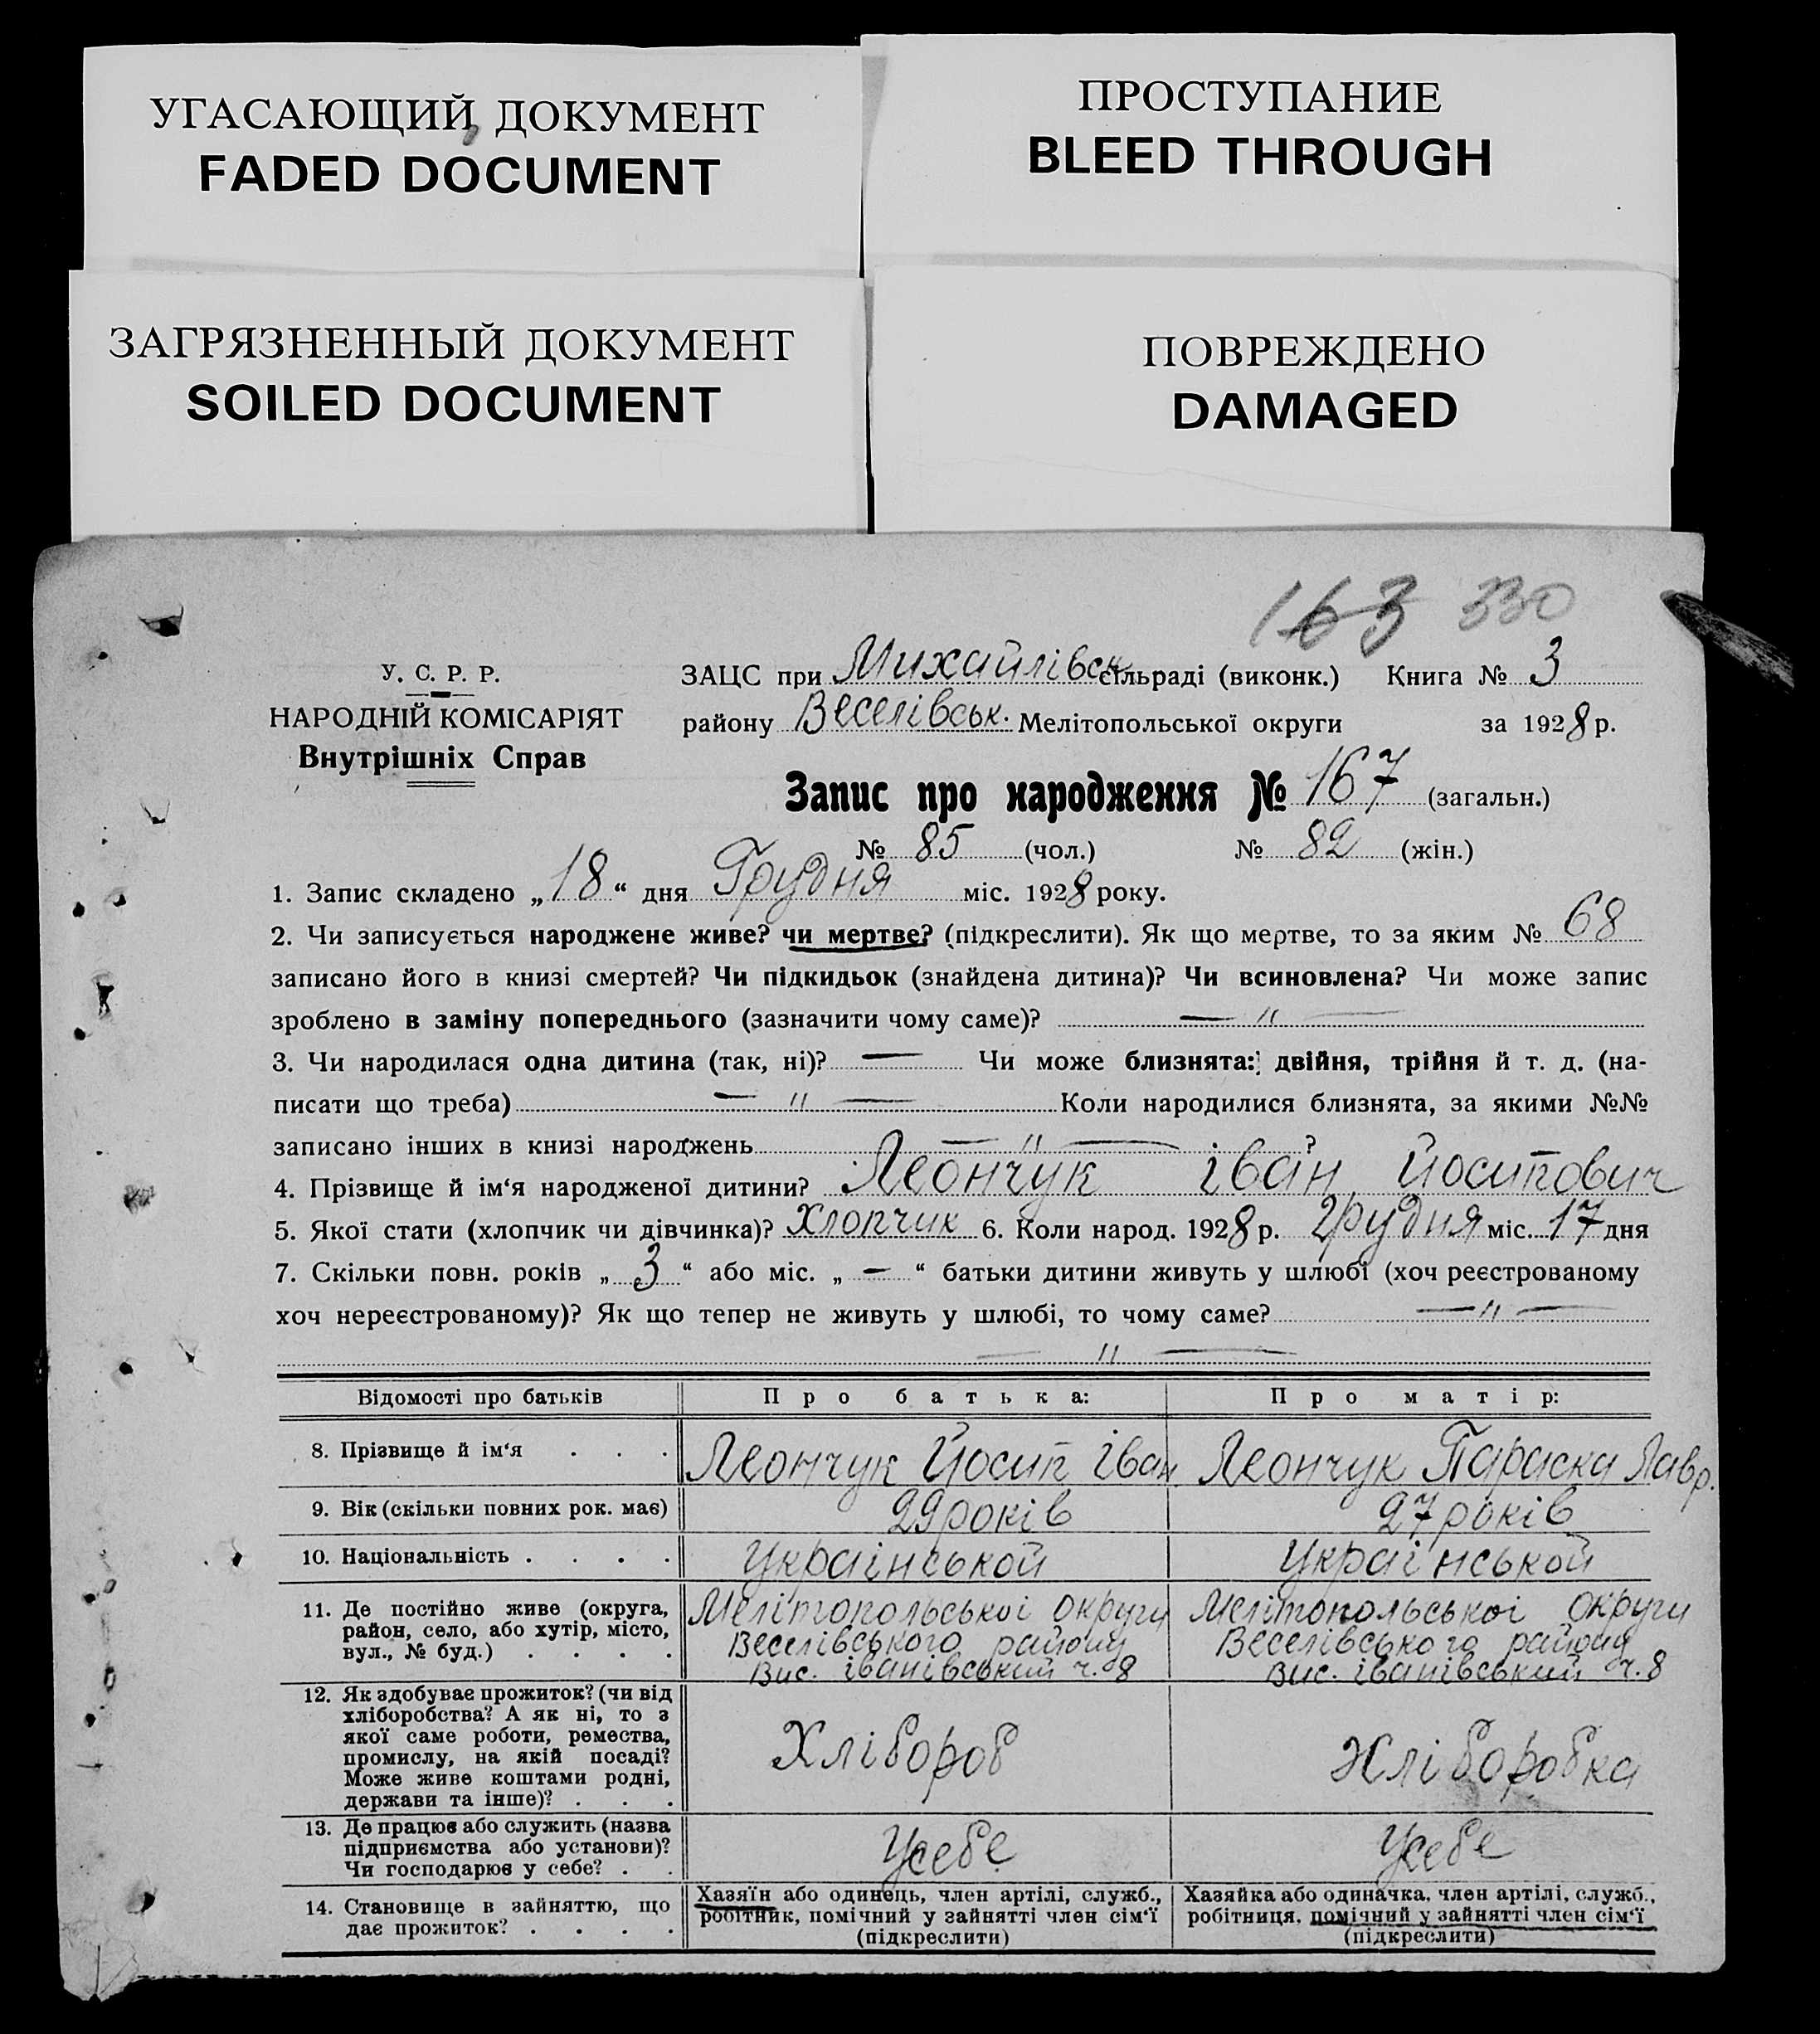 УГАСАЮЩИЙ ДОКУМЕНТ
FADED DOCUMENT
ПРОСТУПАНИЕ
BLEED THROUGH
ЗАГРЯЗНЕННЫЙ ДОКУМЕНТ
SOILED DOCUMENT
ПОВРЕЖДЕНО
DAMAGED
163 330
У. С. Р. Р.
НАРОДНІЙ КОМІСАРІЯТ
Внутрішніх Справ
ЗАЦС при Михайлівськ сільраді (виконк.) Книга № 3
району Веселівськ. Мелітопольської округи за 1928 р.
Запис про народження № 167 (загальн.)
№ 85 (чол.) № 82 (жін.)
1. Запис складено „18“ дня Грудня міс. 1928 року.
2. Чи записується народжене живе? чи мертве? (підкреслити). Як що мертве, то за яким № 68
записано його в книзі смертей? Чи підкидьок (знайдена дитина)? Чи всиновлена? Чи може запис
зроблено в заміну попереднього (зазначити чому саме)? — „ —
3. Чи народилася одна дитина (так, ні)? — Чи може близнята: двійня, трійня й т. д. (на-
писати що треба) — „ — Коли народилися близнята, за якими №№
записано інших в книзі народжень — „ — ?
4. Прізвище й ім‘я народженої дитини? Леончук іван Йосипович
5. Якої стати (хлопчик чи дівчинка)? Хлопчик 6. Коли народ. 1928 р. Грудня міс. 17 дня
7. Скільки повн. років „ 3 “ або міс. „ — “ батьки дитини живуть у шлюбі (хоч реєстрованому
хоч нереєстрованому)? Як що тепер не живуть у шлюбі, то чому саме? — „ —
— „ —
Відомості про батьків Про батька: Про матір:
8. Прізвище й ім‘я . . . Леончук Йосип іван. Леончук Параска Лавр.
9. Вік (скільки повних рок. має) 29 років 27 років
10. Національність . . . . Українськой Українськой
11. Де постійно живе (округа,
район, село, або хутір, місто,
вул., № буд.) . . . .
Мелітопольськоі округи
Веселівського району
Вис. іванівський ч. 8
Мелітопольськоі округи
Веселівського району
Вис. іванівський ч. 8
12. Як здобуває прожиток? (чи від
хліборобства? А як ні, то з
якої саме роботи, ремества,
промислу, на якій посаді?
Може живе коштами родні,
держави та інше)? . . .
Хлібороб
Хліборобка
13. Де працює або служить (назва
підприємства або установи)?
Чи господарює у себе? . .
Усебе
Усебе
14. Становище в зайняттю, що
дає прожиток? . . . .
Хазяїн або одинець, член артілі, служб.,
робітник, помічний у зайнятті член сім‘ї
(підкреслити)
Хазяйка або одиначка, член артілі, служб.,
робітниця, помічний у зайнятті член сім‘ї
(підкреслити)